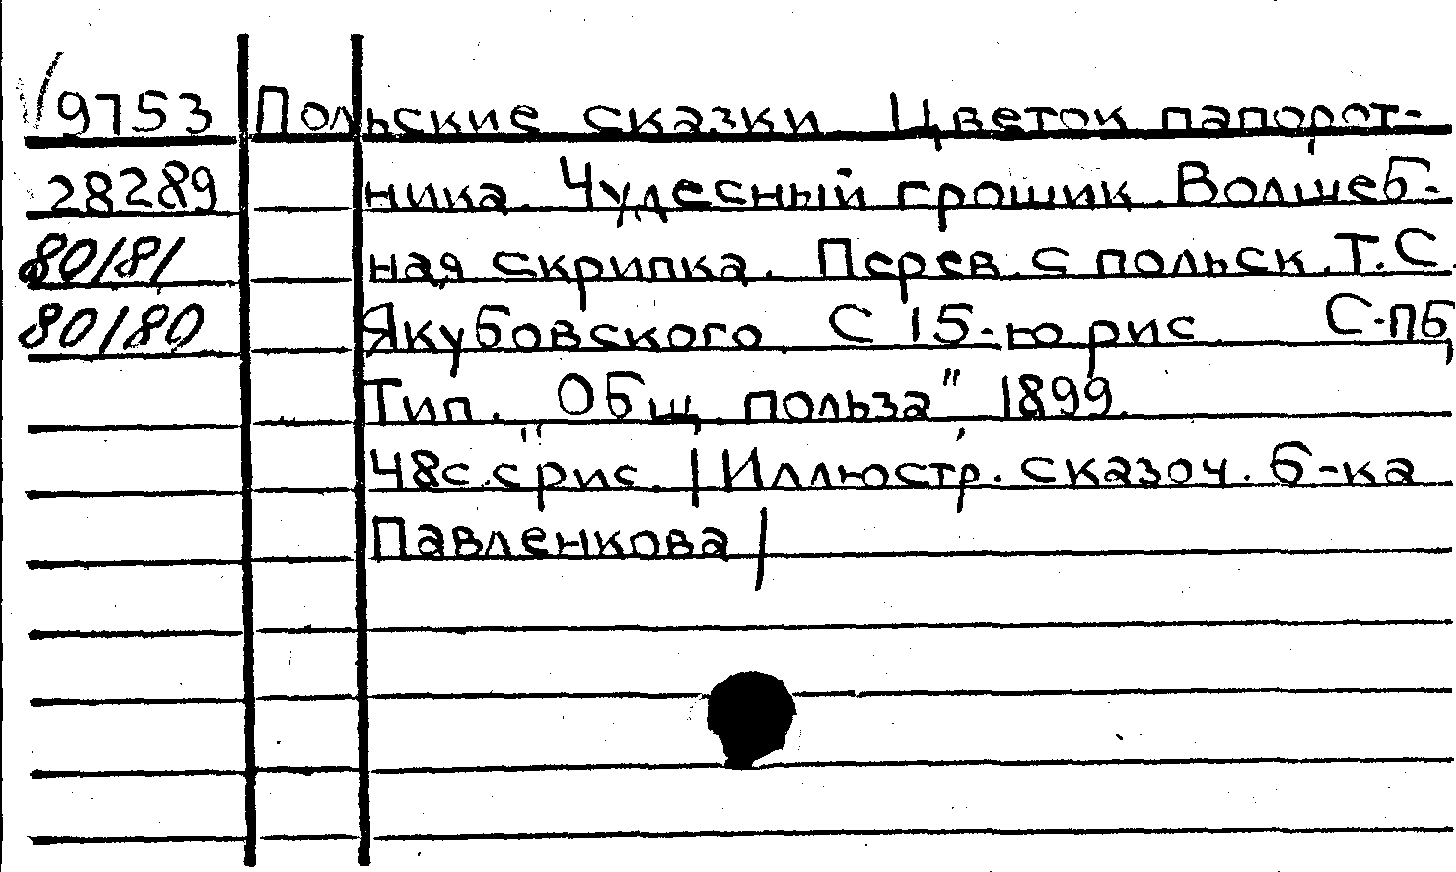 √9753 Польские сказки Цветок папорот-
28289 ника. Чудесный грошик. Волшеб-
80/81 ная скрипка. Перев. с польск. Т.С.
80/80 Якубовского С 15-ю рис С-ПБ,
Тип. „Общ. польза" 1899.
48с. с рис. | Иллюстр. сказоч. б-ка
Павленкова |